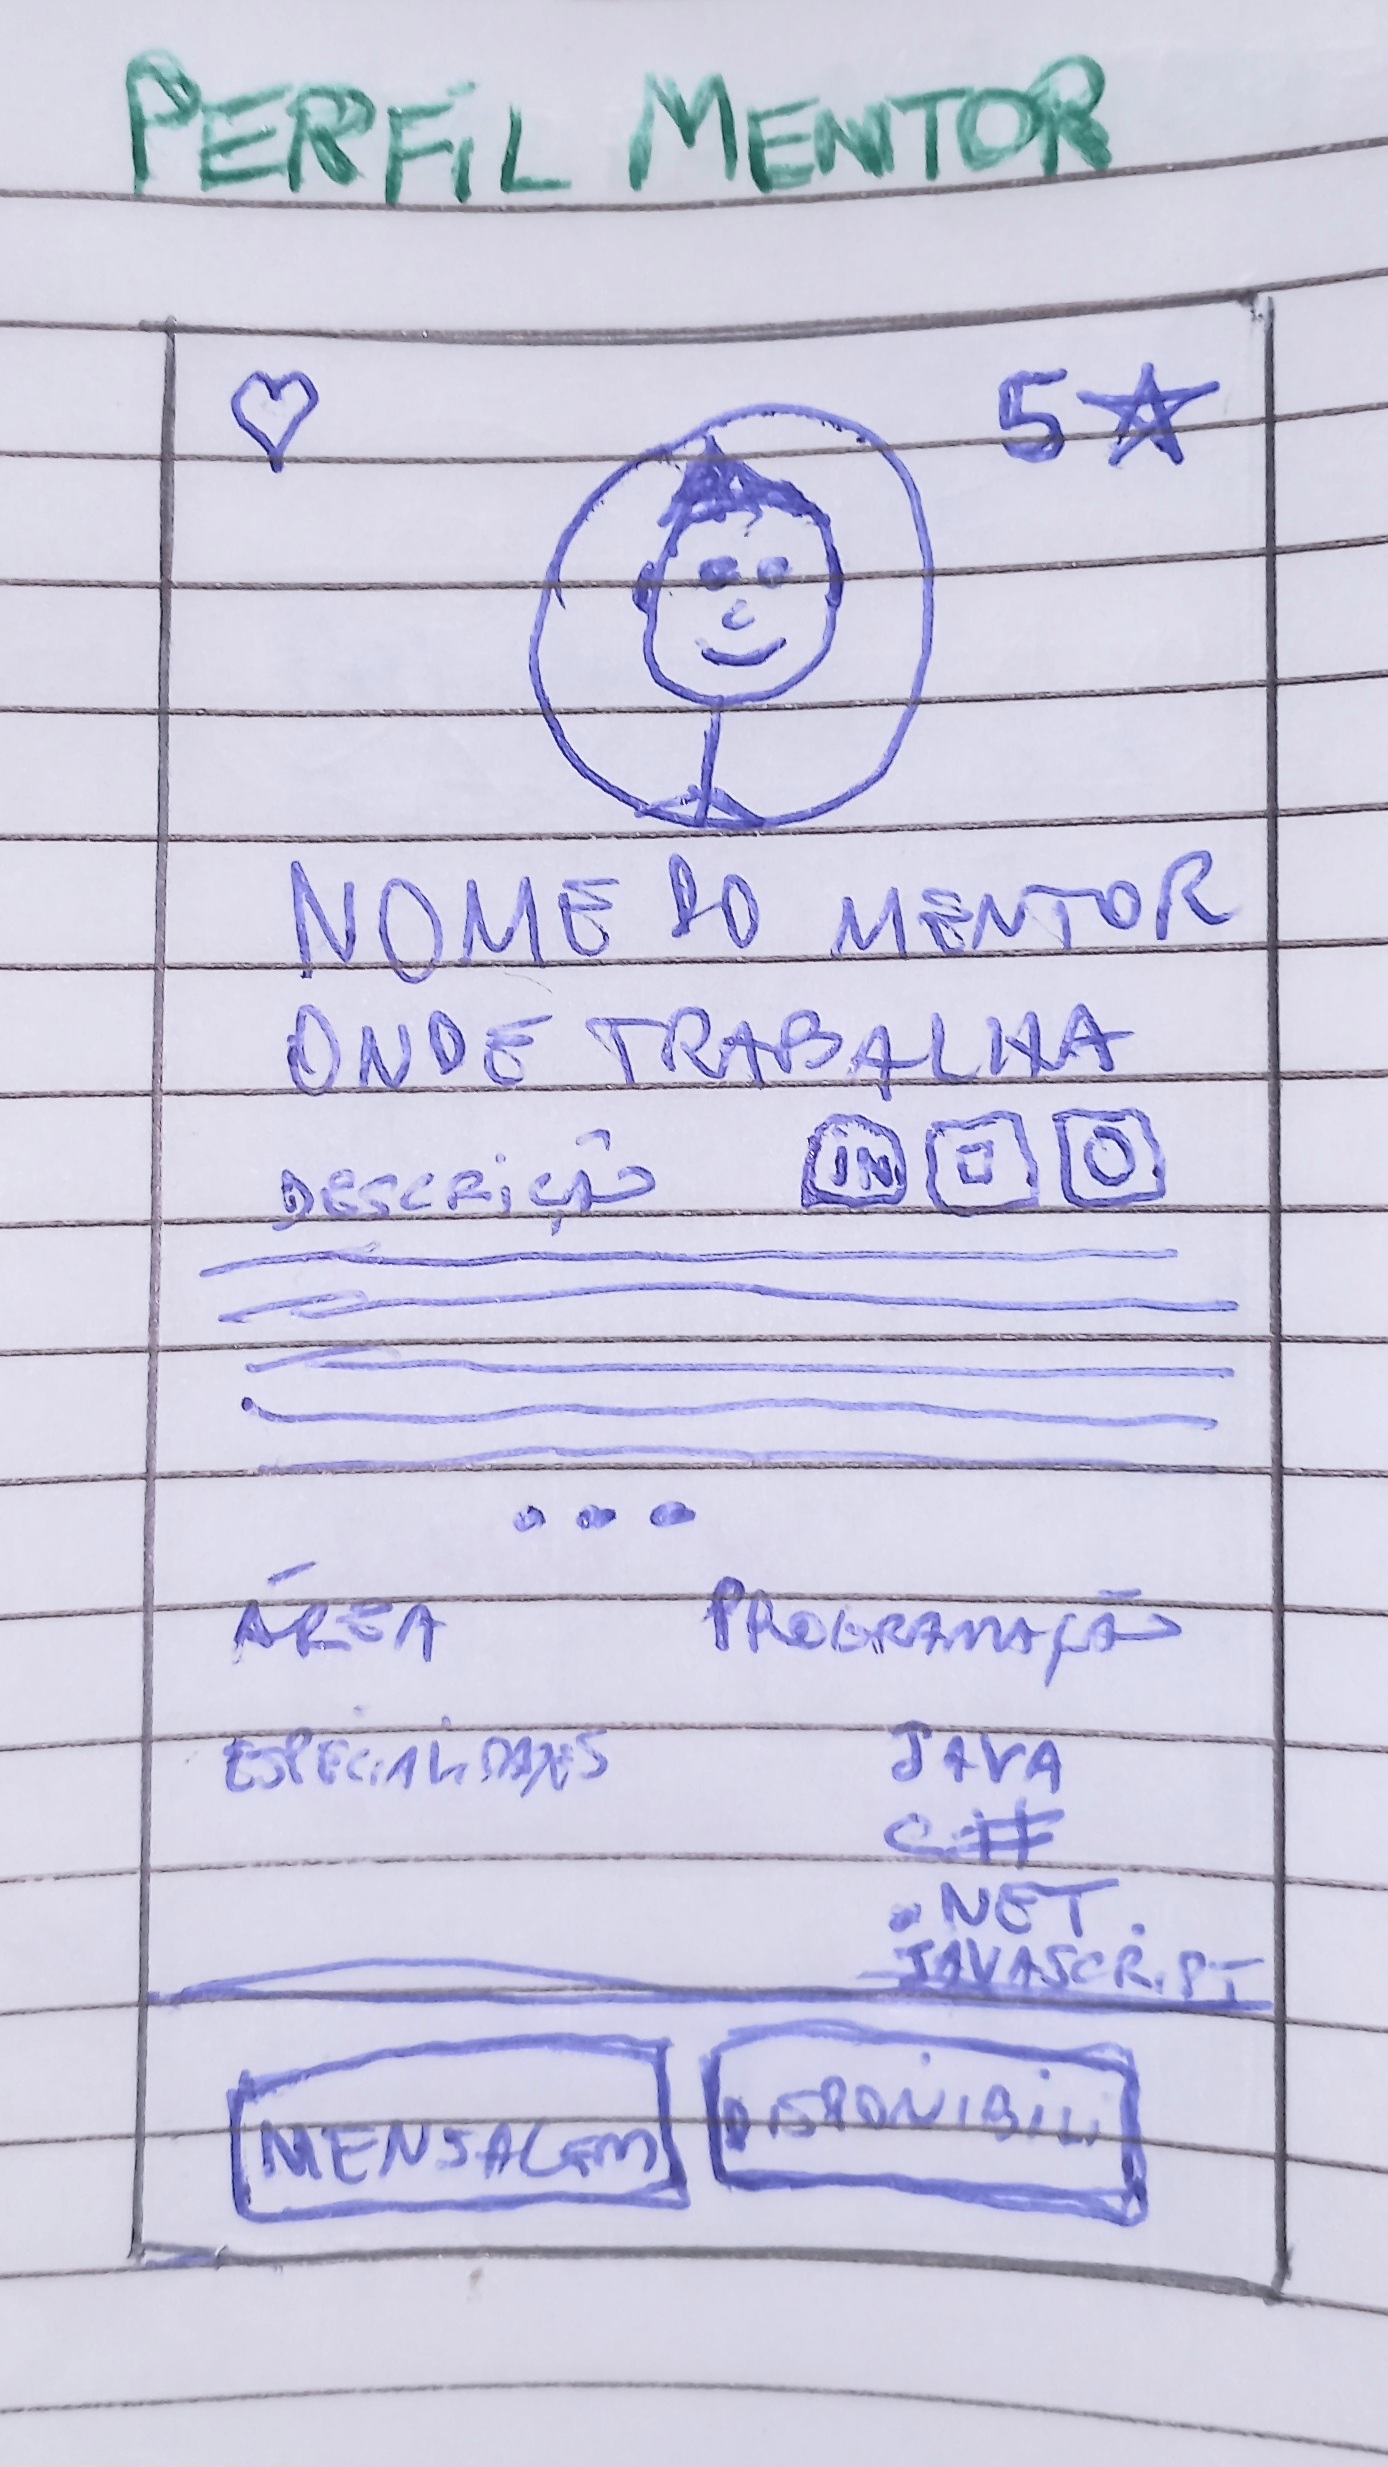 PERFIL MENTOR
5
NOME DO MENTOR
ONDE TRABALHA
DESCRIÇÃO IN
ÁREA PROGRAMAÇÃO
ESPECIALIDADES JAVA
C#
.NET
JAVASCRIPT
MENSAGEM DISPONIBILI